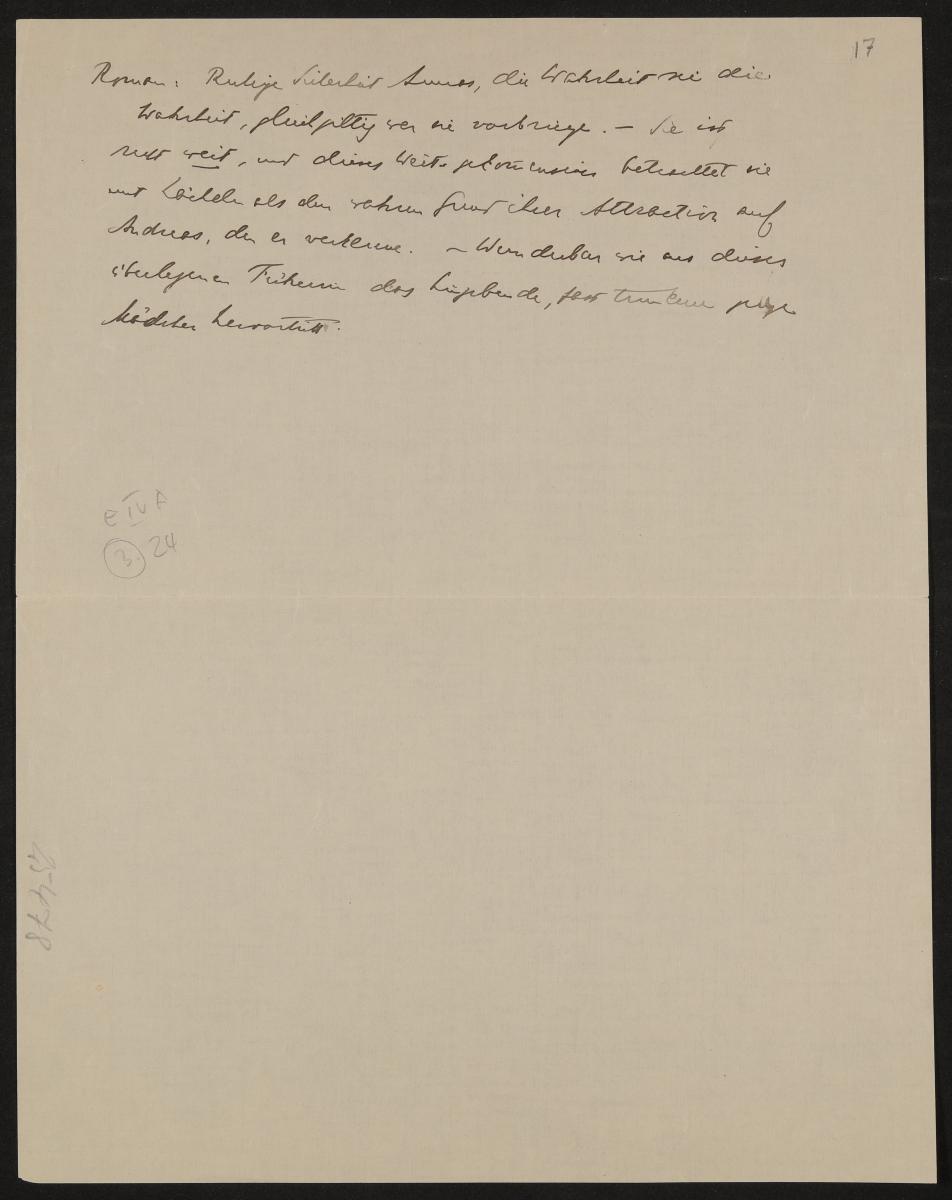 17
Roman: Ruhige Sicherheit Annas, die Wahrheit sei die
Wahrheit, gleichgiltig wer sie vorbringe. – Sie ist
sehr weit, und dieses Weit-gekommensein betrachtet sie
mit Lächeln als den wahren Grund ihrer Attraction auf
Andreas, den er verkenne. – Wunderbar wie aus dieser
überlegenen das hingebende, fast trunkene junge
Mädchen hervortritt.
e IV A
3. 24
25-4-78